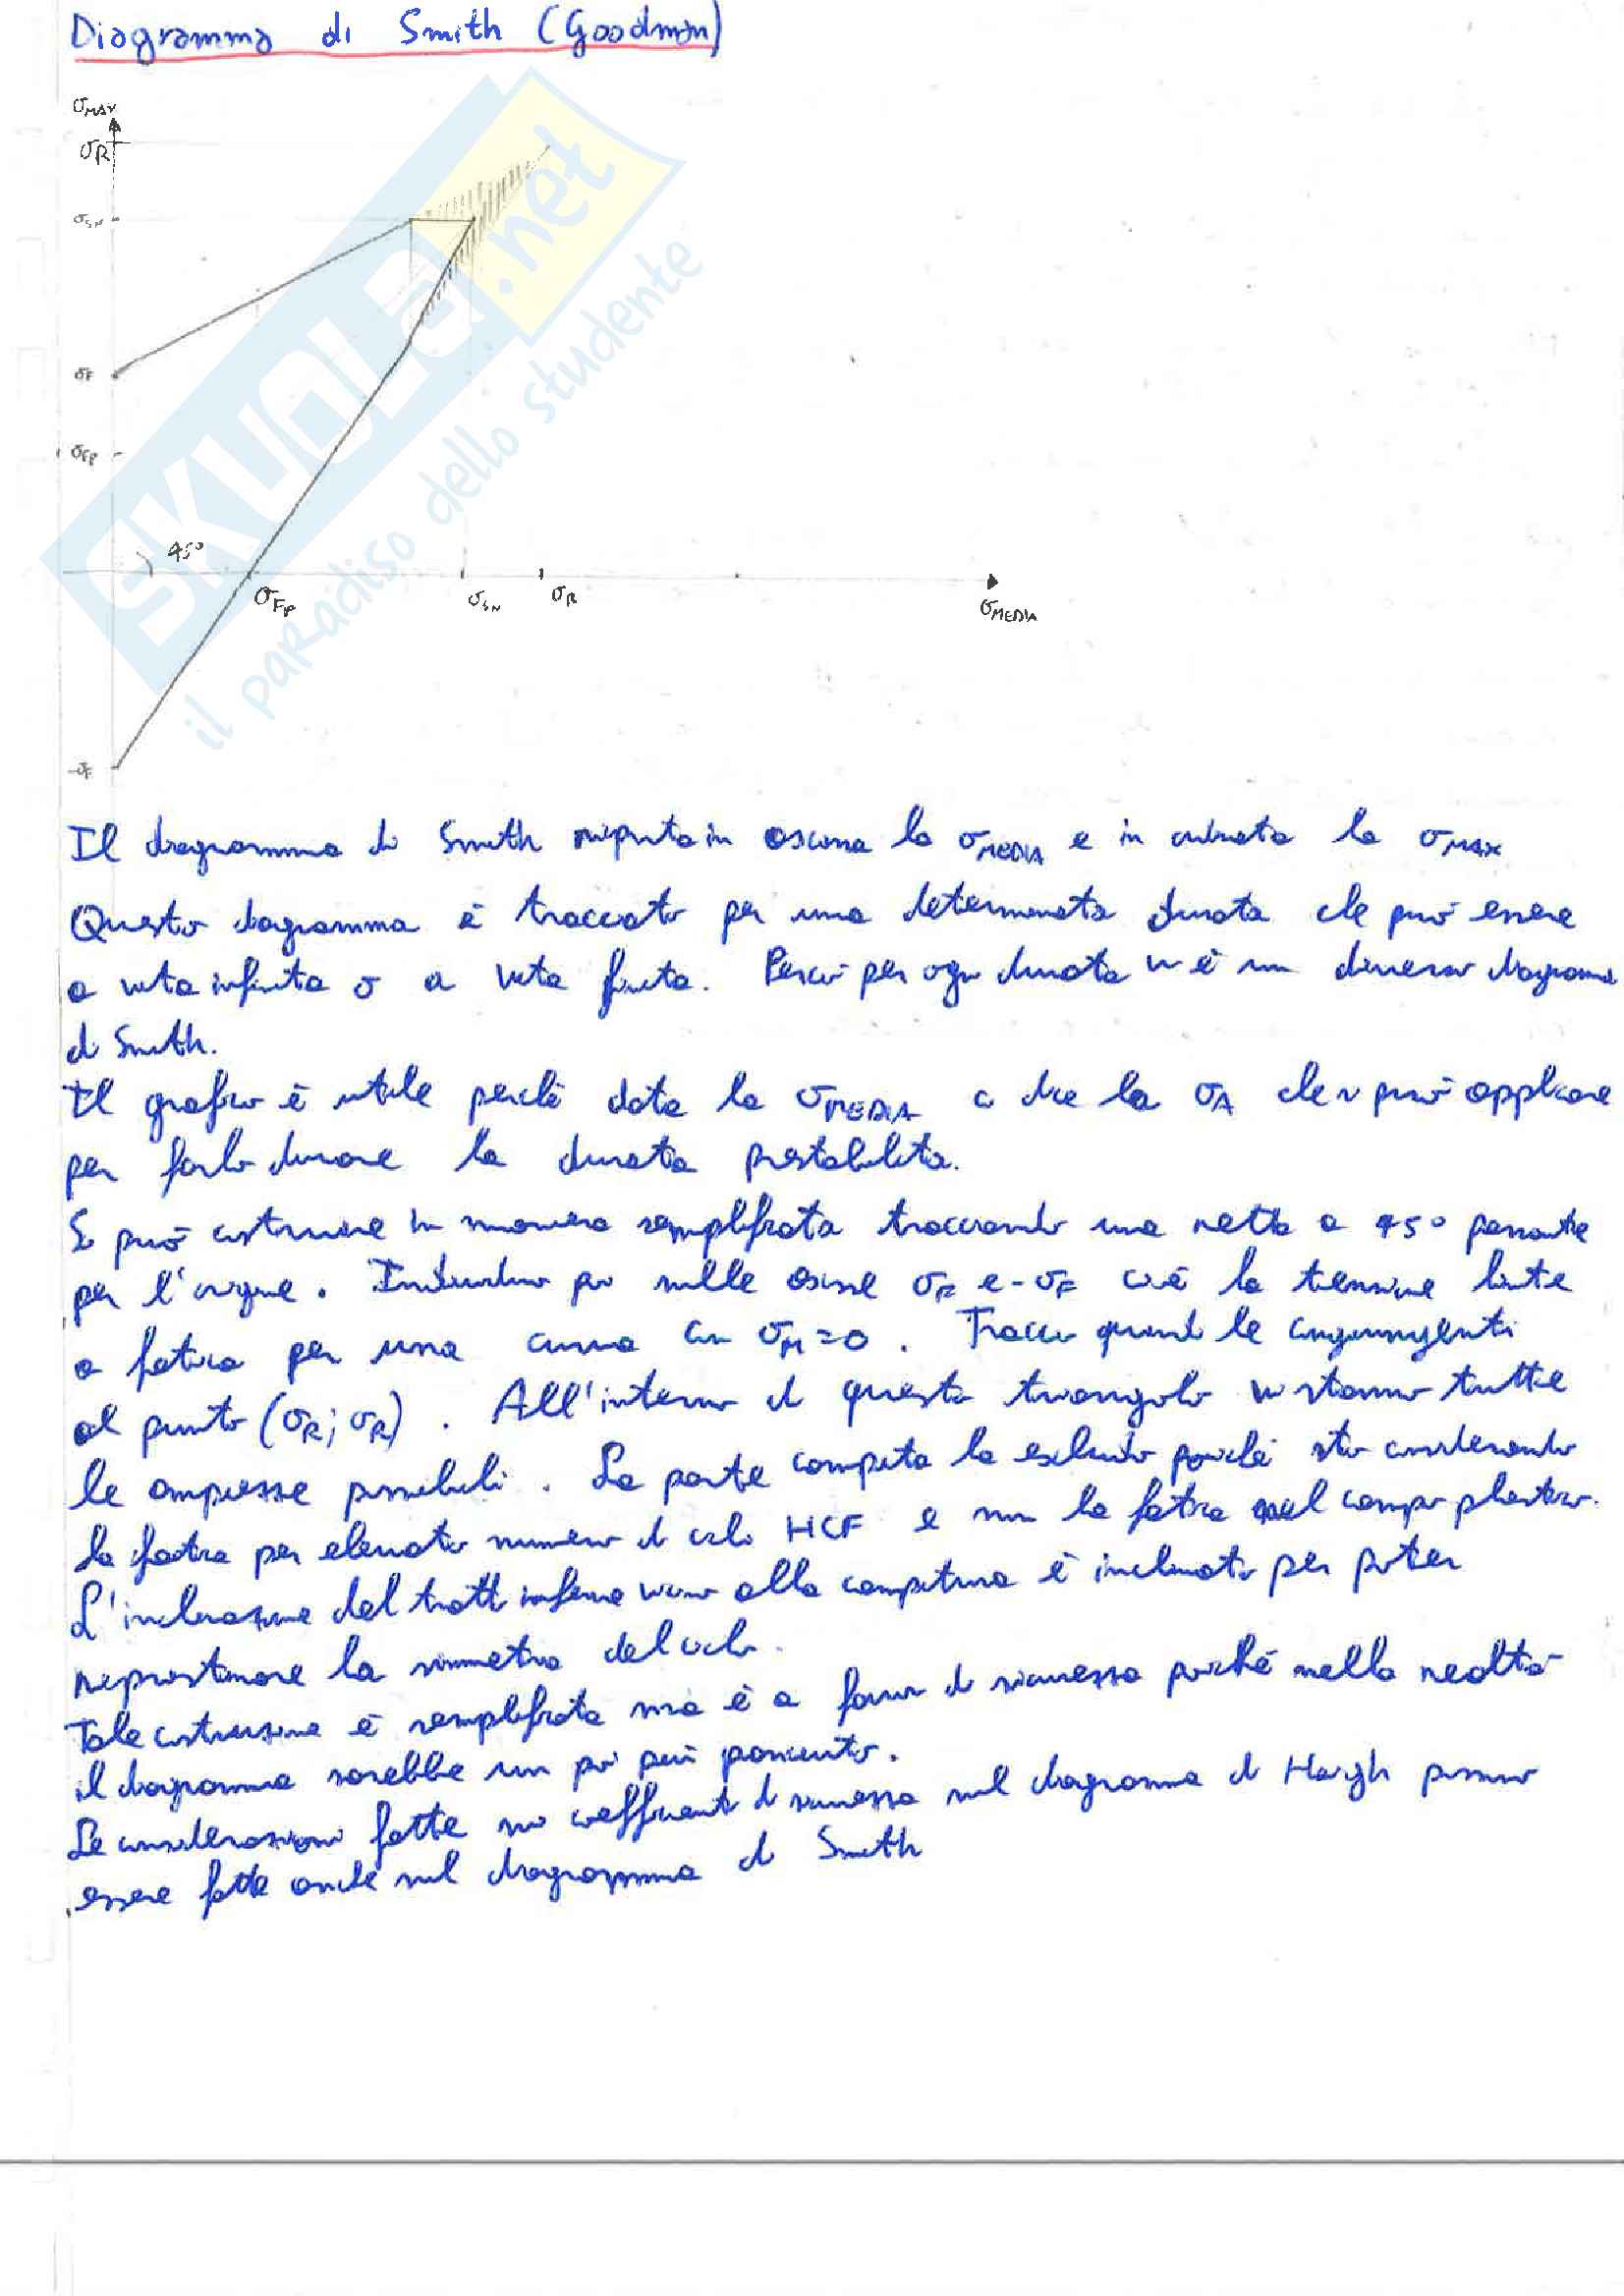 Diagramma di Smith (Goodman)
σMAX
σR
σSN
σF
σFP
45°
σFP
σSN
σR
σMEDIA
-σF
SKUOLA.net
il paradiso dello studente
Il diagramma di Smith riporta in ascissa la σMEDIA e in ordinata la σMAX
Questo diagramma è tracciato per una determinata durata che può essere
a vita infinita o a vita finita. Perciò per ogni durata vi è un diverso diagramma
di Smith.
Il grafico è utile perché data la σMEDIA ci dice la σA che si può applicare
per farlo durare la durata prestabilita.
Si può costruire in maniera semplificata tracciando una retta a 45° passante
per l'origine. Individuo poi sulle ascisse σF e -σF cioè la tensione limite
a fatica per una curva con σM=0. Traccio quindi le congiungenti
al punto (σR; σR). All'interno di questo triangolo vi stanno tutte
le ampiezze possibili. La parte campita la escludo poiché sto considerando
la fatica per elevato numero di cicli HCF e non la fatica nel campo plastico.
L'inclinazione del tratto inferiore vicino alla campitura è inclinato per poter
ripristinare la simmetria del ciclo.
Tale costruzione è semplificata ma è a favore di sicurezza poiché nella realtà
il diagramma sarebbe un po' più panciuto.
Le considerazioni fatte sui coefficienti di sicurezza sul diagramma di Haigh possono
essere fatte anche sul diagramma di Smith